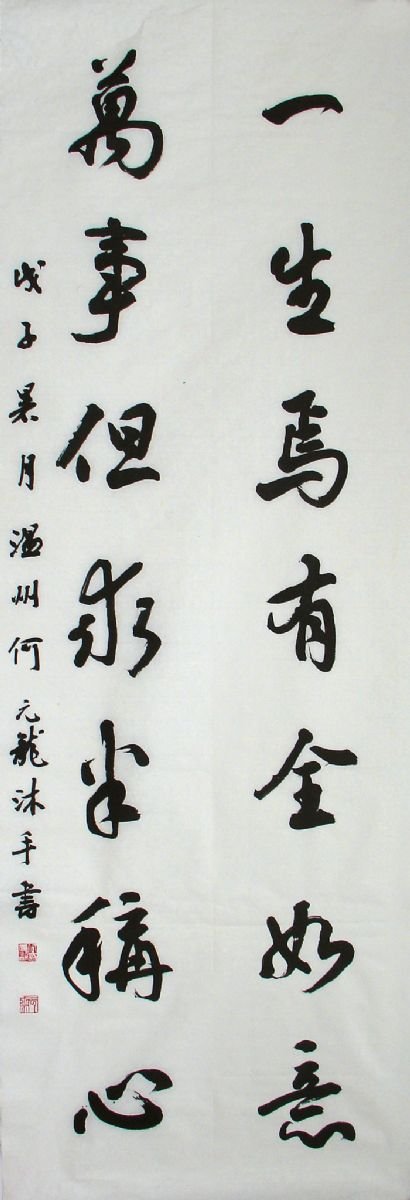 一生焉有全如意
萬事但求半稱心
戊子 月温州何元龍沐手書